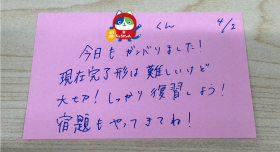 くん 4/2
今日もガンバりました!
現在完了形は難しいけど
大切!しっかり復習しよう!
宿題もやってきてね!